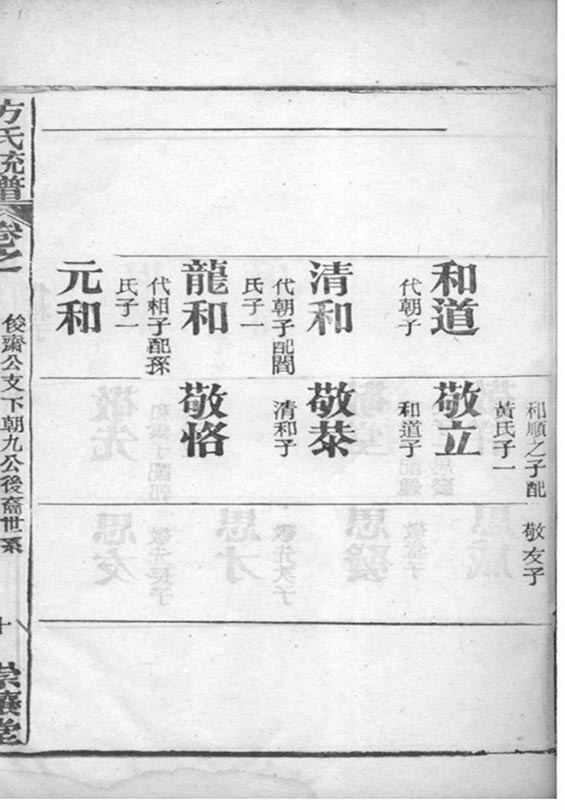 和道
代朝子
清和
代朝子配閻
氏子一
龍和
代相子配孫
氏子一
元和
和順之子配
黃氏子一
敬立
和道子
敬恭
清和子
敬恪
敬友子
方氏統譜
卷之一
俊齋公支下朝九公後裔世系
十